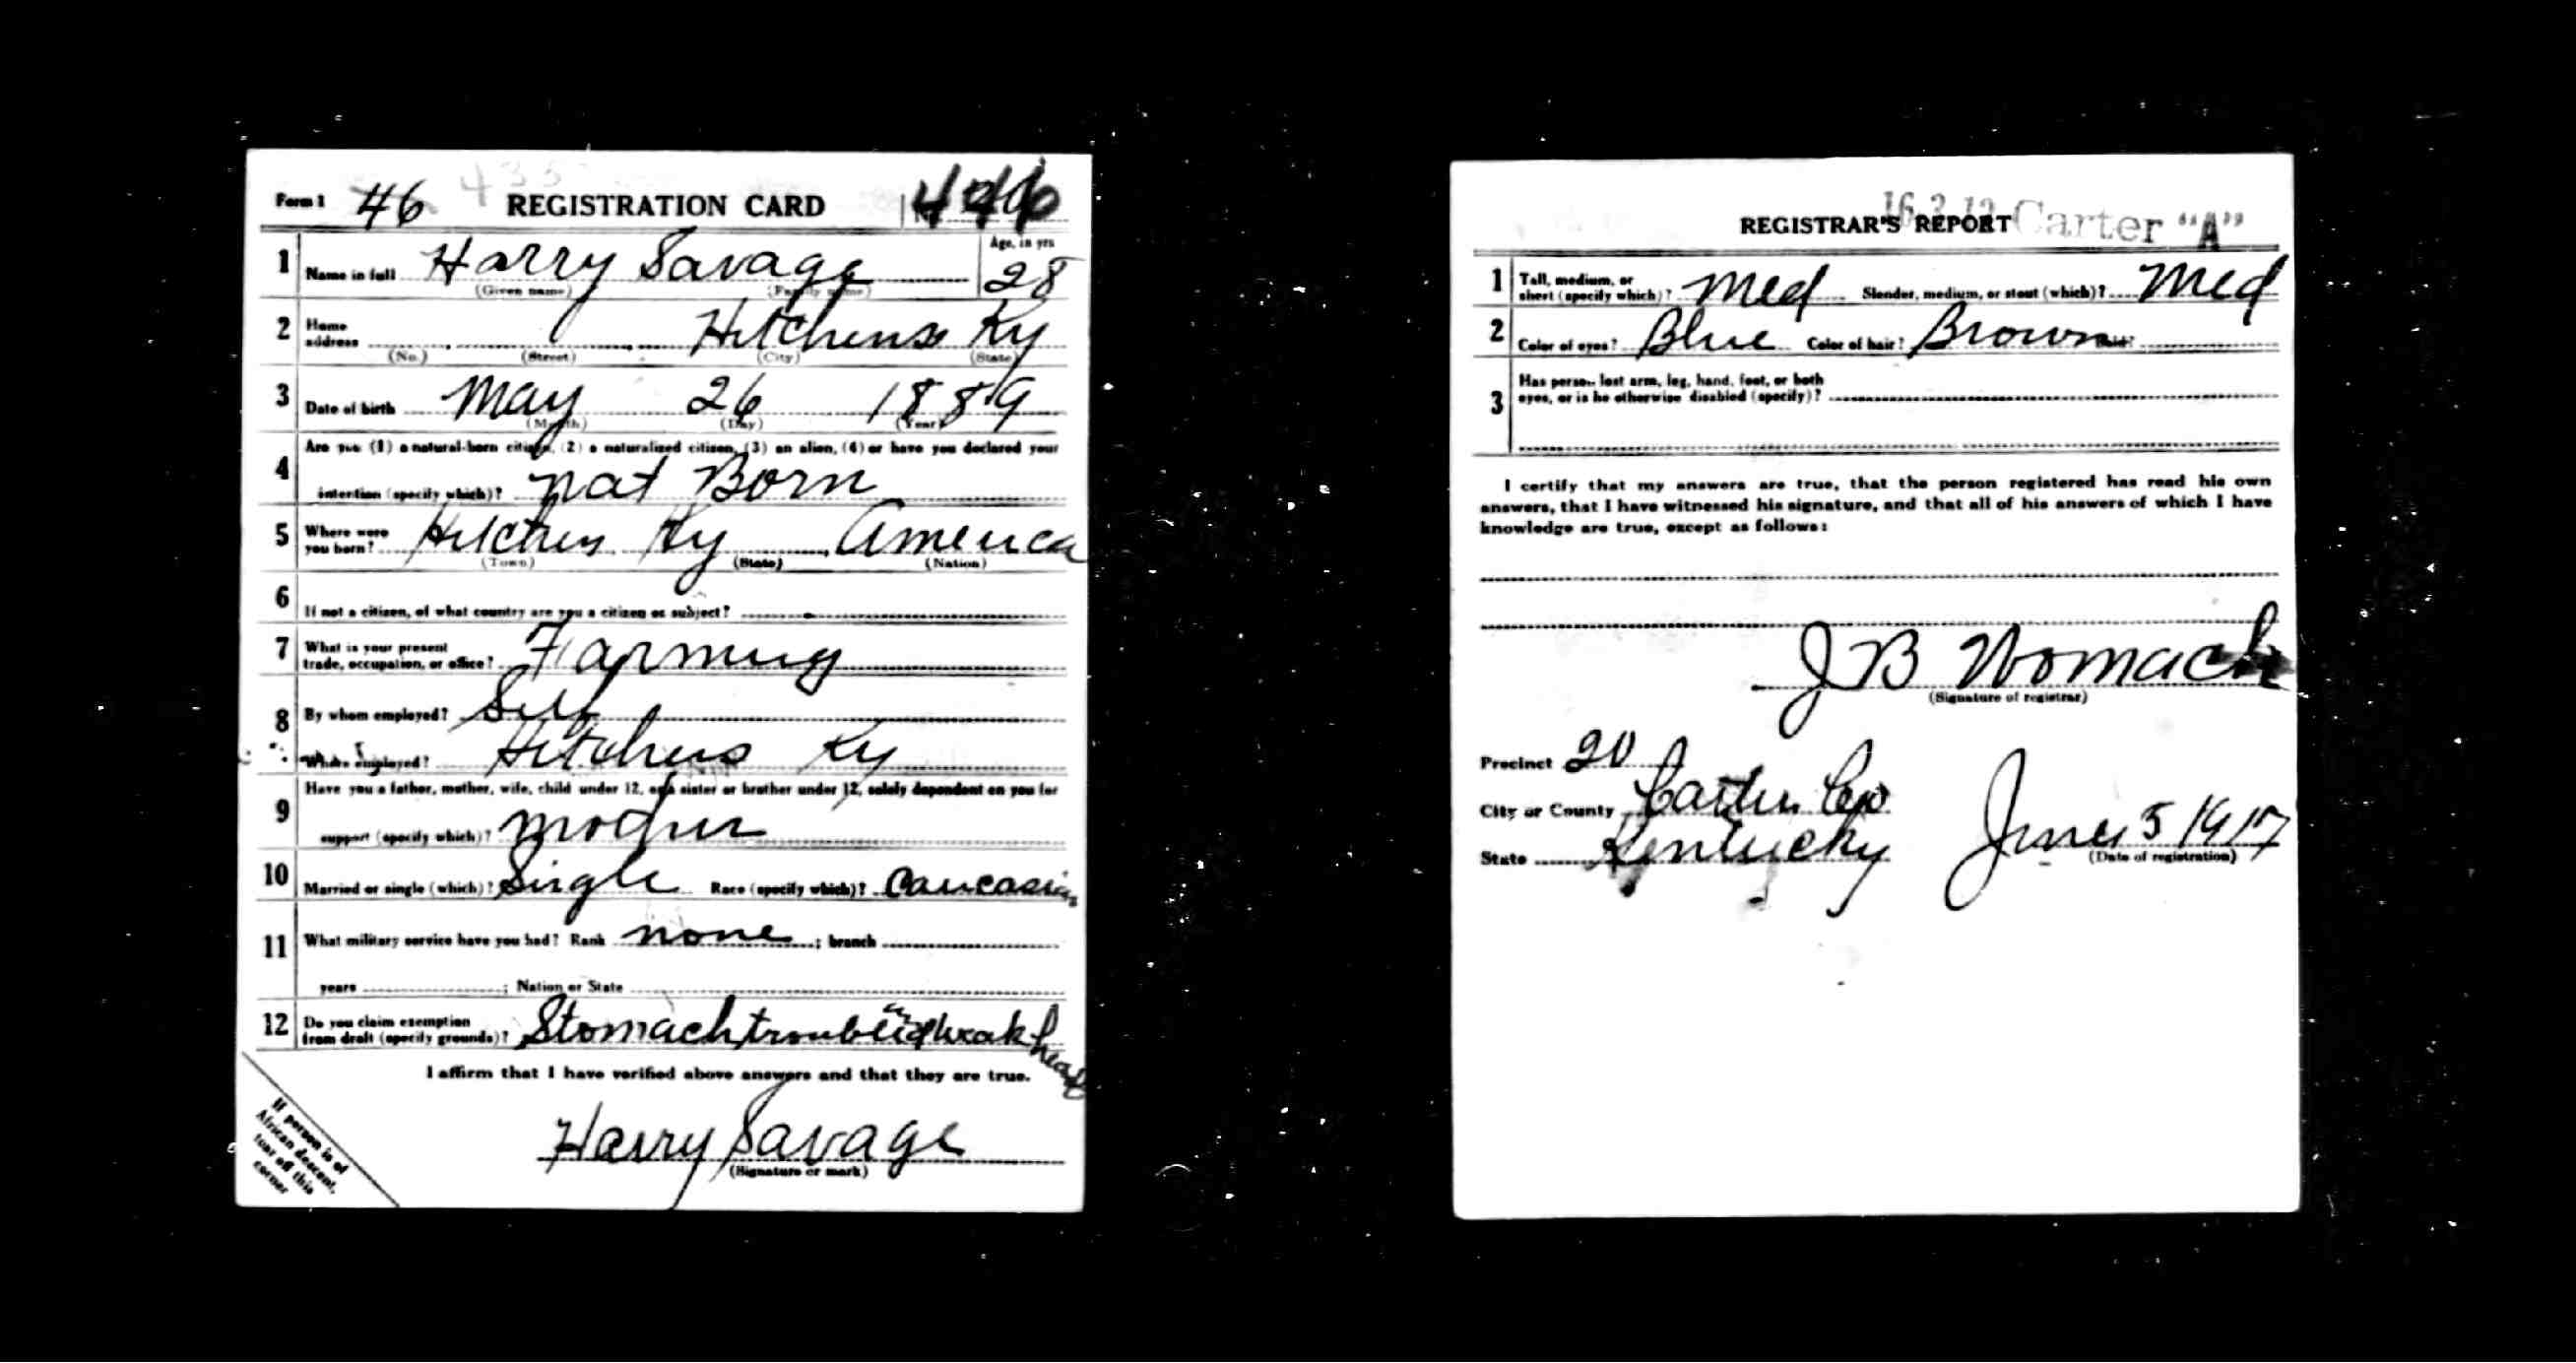 Form 1 46 435 REGISTRATION CARD
1 Name in full Harry Savage Age, in yrs 28
(Given name) (Family name)
2 Home address Hitchens Ky
(No.) (Street) (City) (State)
3 Date of birth May 26 1889
(Month) (Day) (Year)
4 Are you (1) a natural-born citizen, (2) a naturalized citizen, (3) an alien, (4) or have you declared your
intention (specify which)? Nat Born
5 Where were you born? Hitchens Ky America
(Town) (State) (Nation)
6 If not a citizen, of what country are you a citizen or subject?
7 What is your present trade, occupation, or office? Farming
8 By whom employed? Self
Where employed? Hitchens Ky
9 Have you a father, mother, wife, child under 12, or a sister or brother under 12, solely dependent on you for
support (specify which)? Mother
10 Married or single (which)? Single Race (specify which)? Caucasian
11 What military service have you had? Rank none ; branch
years ; Nation or State
12 Do you claim exemption from draft (specify grounds)? Stomach trouble weak
I affirm that I have verified above answers and that they are true.
Harry Savage
(Signature or mark)
If person is of
African descent,
tear off this
corner
REGISTRAR'S REPORT Carter "A"
1 Tall, medium, or short (specify which)? Med Slender, medium, or stout (which)? Med
2 Color of eyes? Blue Color of hair? Brown Bald?
3 Has person lost arm, leg, hand, foot, or both
eyes, or is he otherwise disabled (specify)?
I certify that my answers are true, that the person registered has read his own
answers, that I have witnessed his signature, and that all of his answers of which I have
knowledge are true, except as follows:
J B Womack
(Signature of registrar)
Precinct 20
City or County Carter Co
State Kentucky June 5 1917
(Date of registration)